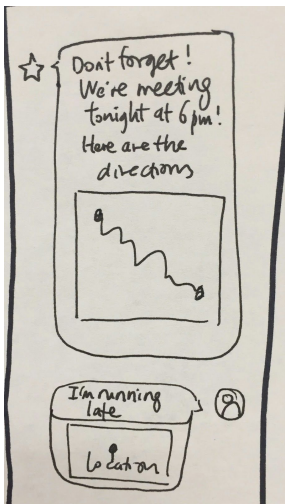 Don't forget!
We're meeting
tonight at 6pm!
Here are the
directions
I'm running
late
Location